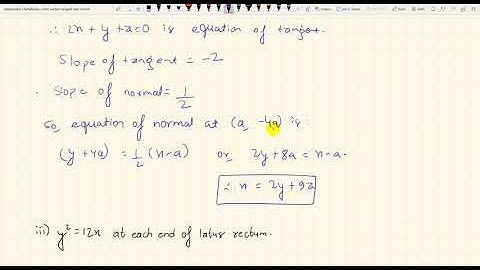 ∴ 2x + y + a = 0 is equation of tangent.
Slope of tangent = -2
. Slope of normal = 1/2
So, equation of normal at (a, -4a) is:
(y + 4a) = 1/2 (x - a) or, 2y + 8a = x - a.
∴ x = 2y + 9a
iii) y² = 12x at each end of latus rectum.